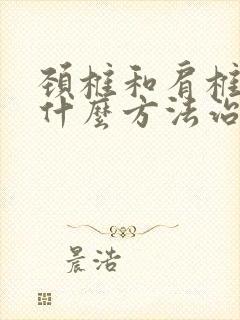 頚椎和肩椎
什麼方法治
晨浩